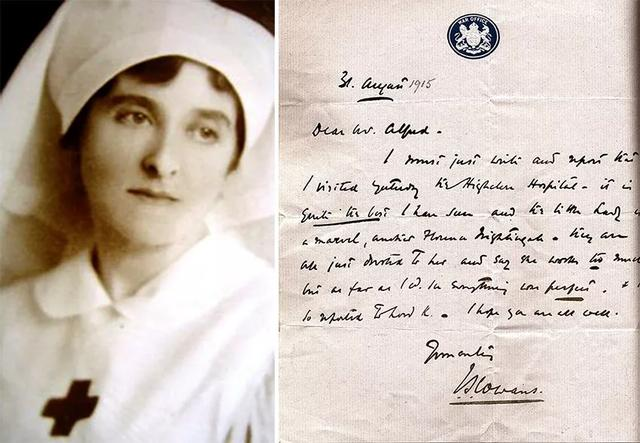 WAR OFFICE
31. August 1915
Dear Mr. Alfred -
I must just write and report that
I visited yesterday the Highclere Hospital - it is
quite the best I have seen and the little lady is
a marvel, another Florence Nightingale - they are
all just devoted to her and say she works too much
but as far as I could see everything was perfect. &
so reported to Lord K. - I hope you are all well.
Yours
J S Cowans.